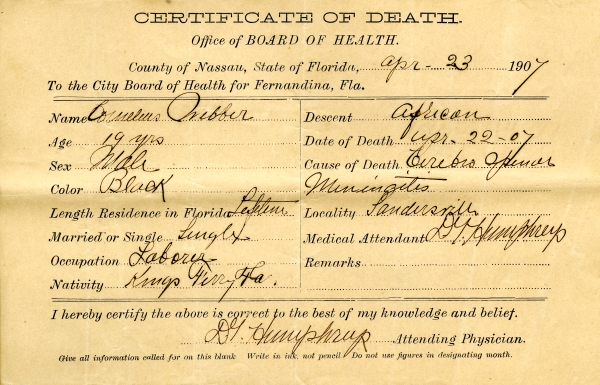 CERTIFICATE OF DEATH.
Office of BOARD OF HEALTH.
County of Nassau, State of Florida, Apr- 23 1907
To the City Board of Health for Fernandina, Fla.
Name Cornelius Webber
Age 19 yrs
Sex Male
Color Black
Length Residence in Florida Lifetime
Married or Single Single
Occupation Laborer
Nativity Kings Ferry Fla.
Descent African
Date of Death Apr. 22-07
Cause of Death Cerebro Spinal
Miningitis
Locality Sandersville
Medical Attendant Humphreys
Remarks
I hereby certify the above is correct to the best of my knowledge and belief.
Humphreys Attending Physician.
Give all information called for on this blank Write in ink, not pencil Do not use figures in designating month.